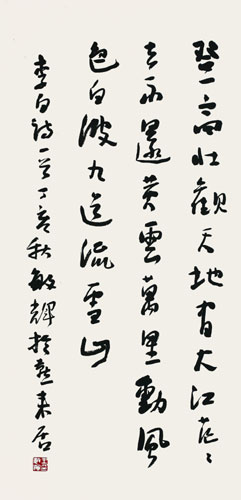 登高壯觀天地間大江茫々
去不還黃雲萬里動風
色白波九道流雪山
李白詩一首丁亥秋敏輝於來居